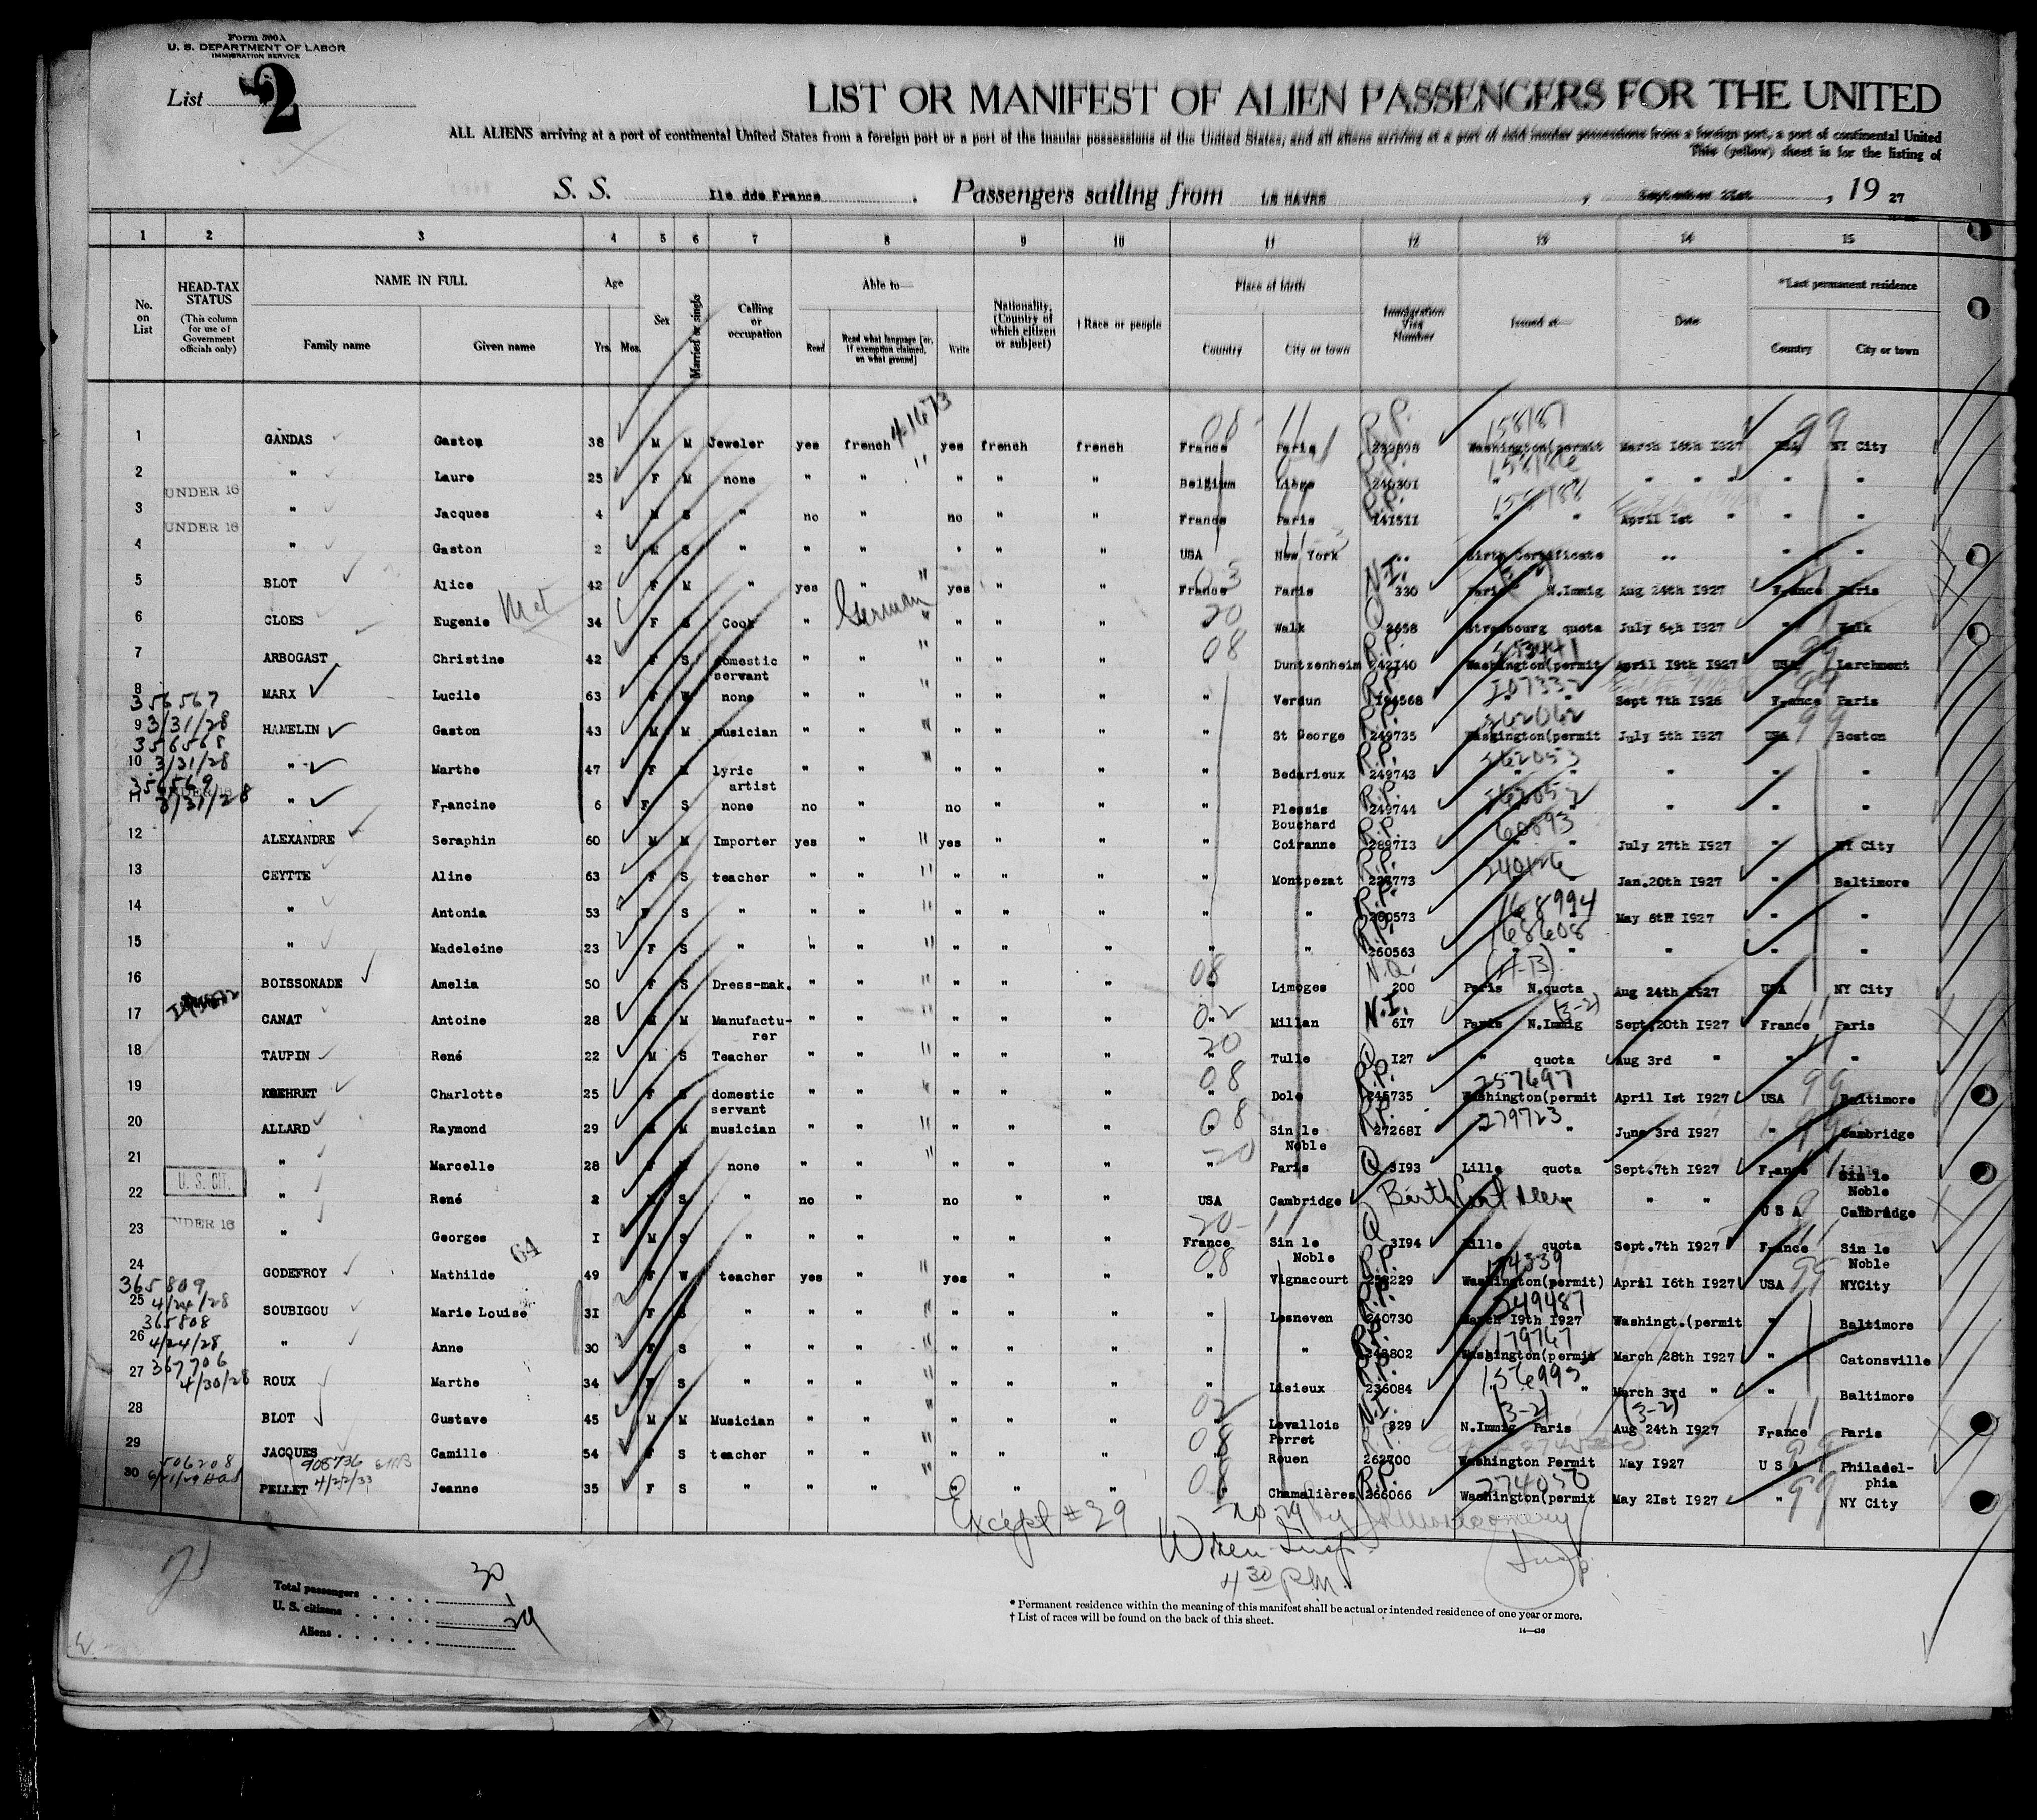 Form 500A
U. S. DEPARTMENT OF LABOR
IMMIGRATION SERVICE
List 2
LIST OR MANIFEST OF ALIEN PASSENGERS FOR THE UNITED
ALL ALIENS arriving at a port of continental United States from a foreign port or a port of the insular possessions of the United States, and all aliens arriving at a port of said insular possessions from a foreign port, a port of continental United
This (yellow) sheet is for the listing of
S. S. Ile dde France . Passengers sailing from LE HAVRE , , 19 27
1 2 3 4 5 6 7 8 9 10 11 12 13 14 15
No. on List
HEAD-TAX STATUS (This column for use of Government officials only)
NAME IN FULL
Family name Given name
Age
Yrs. Mos.
Sex
Married or single
Calling or occupation
Able to—
Read Read what language [or, if exemption claimed, on what ground] Write
Nationality. (Country of which citizen or subject)
† Race or people
Place of birth
Country City or town
Immigration Visa Number
Issued at—
Date
*Last permanent residence
Country City or town
1 GANDAS Gaston 38 M M Jeweler yes french 4-1673 yes french french France Paris R.P. 239898 158187 Washington(permit March 16th 1927 USA 99 NY City
2 " Laure 25 F M none " " " " " Belgium Liège R.P. 240301 " " " " " "
UNDER 16
3 " Jacques 4 M S " no " no " " France Paris R.P. 141511 158188 " " April 1st " " "
UNDER 16
4 " Gaston 2 M S " " " " " " USA New York .. Birth Certificate .. " "
5 BLOT Alice 42 F M " yes " yes " " France Paris N.I. 330 Paris N.Immig Aug 24th 1927 France Paris
6 CLOES Eugenie 34 F S Cook " German " " " 20 Walk Q 2658 Strasbourg quota July 6th 1927 " Walk
7 ARBOGAST Christine 42 F S domestic servant " " " " " 08 Duntzenheim R.P. 242140 Washington(permit April 19th 1927 USA 99 Larchmont
8 MARX Lucile 63 F W none " " " " " " Verdun R.P. 194568 107332 " " Sept 7th 1926 France Paris
356567
3/31/28
9 HAMELIN Gaston 43 M M musician " " " " " " St George R.P. 249735 262062 Washington(permit July 5th 1927 USA 99 Boston
356568
3/31/28
10 " Marthe 47 F M lyric artist " " " " " " Bedarieux R.P. 249743 262053 " " " " "
356569
3/31/28
11 " Francine 6 F S none no " no " " " Plessis Bouchard R.P. 249744 262052 " " " " "
12 ALEXANDRE Seraphin 60 M M Importer yes " yes " " " Coiranne R.P. 289713 60893 " " July 27th 1927 " NY City
13 CEYTTE Aline 63 F S teacher " " " " " " Montpezat R.P. 223773 240126 " Jan.20th 1927 " Baltimore
14 " Antonia 53 F S " " " " " " " " R.P. 260573 168994 " May 6th 1927 " "
15 " Madeleine 23 F S " " " " " " " " R.P. 260563 168608 " " " "
16 BOISSONADE Amelia 50 F S Dress-mak. " " " " " 08 Limoges N.Q. 200 (4-B) Paris N.quota Aug 24th 1927 USA NY City
17 CANAT Antoine 28 M M Manufacturer " " " " " 02 Millan N.I. 617 Paris N.Immig (3-2) Sept.20th 1927 France Paris
18 TAUPIN René 22 M S Teacher " " " " " 20 Tulle Q 127 " quota Aug 3rd " " "
19 KOEHRET Charlotte 25 F S domestic servant " " " " " 08 Dole R.P. 245735 257697 Washington(permit April 1st 1927 USA 99 Baltimore
20 ALLARD Raymond 29 M M musician " " " " " 08 Sin le Noble R.P. 272681 279723 " " June 3rd 1927 " 99 Cambridge
21 " Marcelle 28 F M none " " " " " 20 Paris Q 3193 Lille quota Sept.7th 1927 France Sin le Noble
U. S. CIT.
22 " René 2 M S " no " no " " USA Cambridge Birth Cert " " " U S A Cambridge
UNDER 16
23 " Georges 1 M S " " " " " " 20 France Sin le Noble Q 3194 Lille quota Sept.7th 1927 France Sin le Noble
64
24 GODEFROY Mathilde 49 F W teacher yes " yes " " 08 Vignacourt R.P. 258229 Washington(permit) April 16th 1927 USA 99 NYCity
365809
4/24/28
25 SOUBIGOU Marie Louise 31 F S " " " " " " " Lesneven R.P. 240730 249487 March 19th 1927 Washingt.(permit " Baltimore
365808
4/24/28
26 " Anne 30 F S " " " " " " " " R.P. 179767 Washington(permit March 28th 1927 " Catonsville
367706
4/30/28
27 ROUX Marthe 34 F S " " " " " " " Lisieux R.P. 236084 " March 3rd " " Baltimore
28 BLOT Gustave 45 M M Musician " " " " " 02 Levallois Perret N.I. 329 (3-2) N.Immig Paris (3-2) Aug 24th 1927 France Paris
29 JACQUES Camille 54 F S teacher " " " " " 08 Rouen R.P. 262700 Washington Permit May 1927 U S A 99 Philadelphia
506208 908736
4/22/33
30 PELLET Jeanne 35 F S " " " " " " 08 Chamalières R.P. 266066 274030 Washington(permit May 21st 1927 " 99 NY City
Except #29
no 29 by
4 30 P.M.
Insp.
Total passengers . . . . 30
U. S. citizens . . . . . 1
Aliens . . . . . . 29
* Permanent residence within the meaning of this manifest shall be actual or intended residence of one year or more.
† List of races will be found on the back of this sheet.
14—430